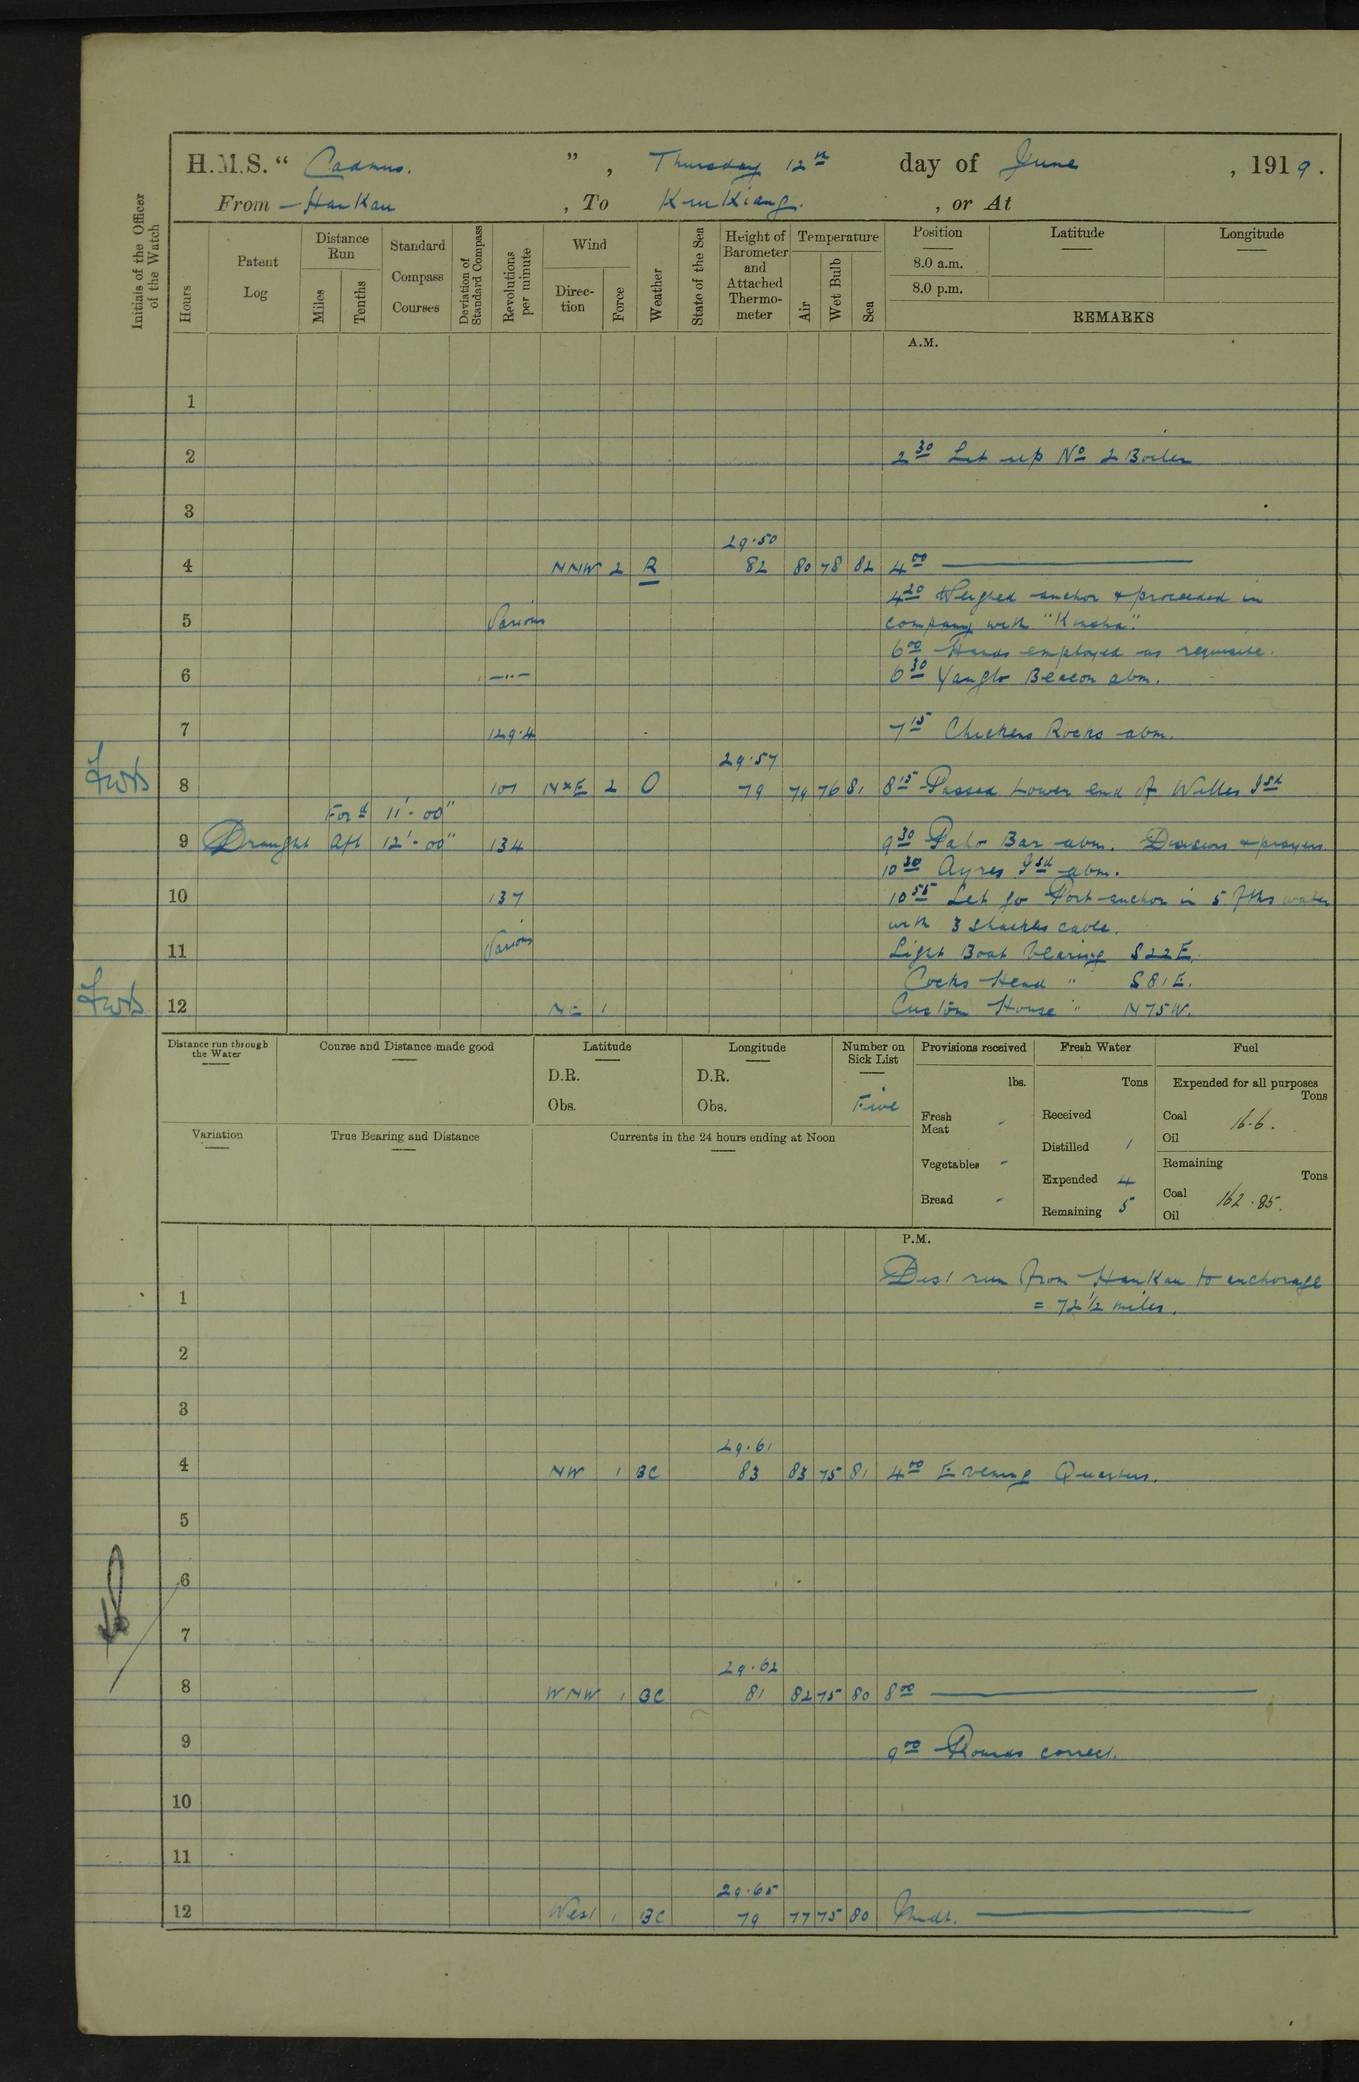 H.M.S. "Cadmus.", Thursday 12th day of June, 1919.
From Hankau, To Kiukiang., or At
Initials of the Officer of the Watch
Hours
Patent Log
Distance Run
Miles
Tenths
Standard Compass Courses
Deviation of Standard Compass
Revolutions per minute
Wind
Direction
Force
Weather
State of the Sea
Height of Barometer and Attached Thermometer
Temperature
Air
Wet Bulb
Sea
Position
8.0 a.m.
8.0 p.m.
Latitude
Longitude
REMARKS
A.M.
1
2 2 30 Let up No 2 Boiler
3
29.50
4 NNW 2 R 82 80 78 82 4 00
4 20 Weighed anchor & proceeded in
5 Various company with
6 00 Hands employed as requisite.
6 —"— 6 30 Yanglo Beacon abm.
7 129.4 7 15 Chickens Rocks abm.
29.57
8 107 NxE 2 O 79 79 76 81 8 15 Passed Lower end of Willes Isd
Ford 11'-00"
9 Draught Aft 12'-00" 134 9 30 Paho Bar abm. Divisions & prayers
10 30 Ayres Isd abm.
10 137 10 55 Let go Port anchor in 5 fths water
with 3 shackles cable.
11 Various Light Boat bearing S22E.
Cocks Head " S81E.
12 NE 1 Custom House " N75W.
Distance run through the Water
Course and Distance made good
Latitude
D.R.
Obs.
Longitude
D.R.
Obs.
Number on Sick List
Five
Provisions received
lbs.
Fresh Meat -
Vegetables -
Bread -
Fresh Water
Tons
Received
Distilled 1
Expended 4
Remaining 5
Fuel
Expended for all purposes
Tons
Coal 16.6.
Oil
Remaining
Tons
Coal 162.85.
Oil
Variation
True Bearing and Distance
Currents in the 24 hours ending at Noon
P.M.
Dist run from Hankau to anchorage
1 = 72 1/2 miles.
2
3
29.61
4 NW 1 BC 83 83 75 81 4 00 Evening Quarters.
5
6
7
29.62
8 WNW 1 BC 81 82 75 80 8 00
9 9 00 Rounds correct.
10
11
29.65
12 West 1 BC 79 77 75 80 Midt.